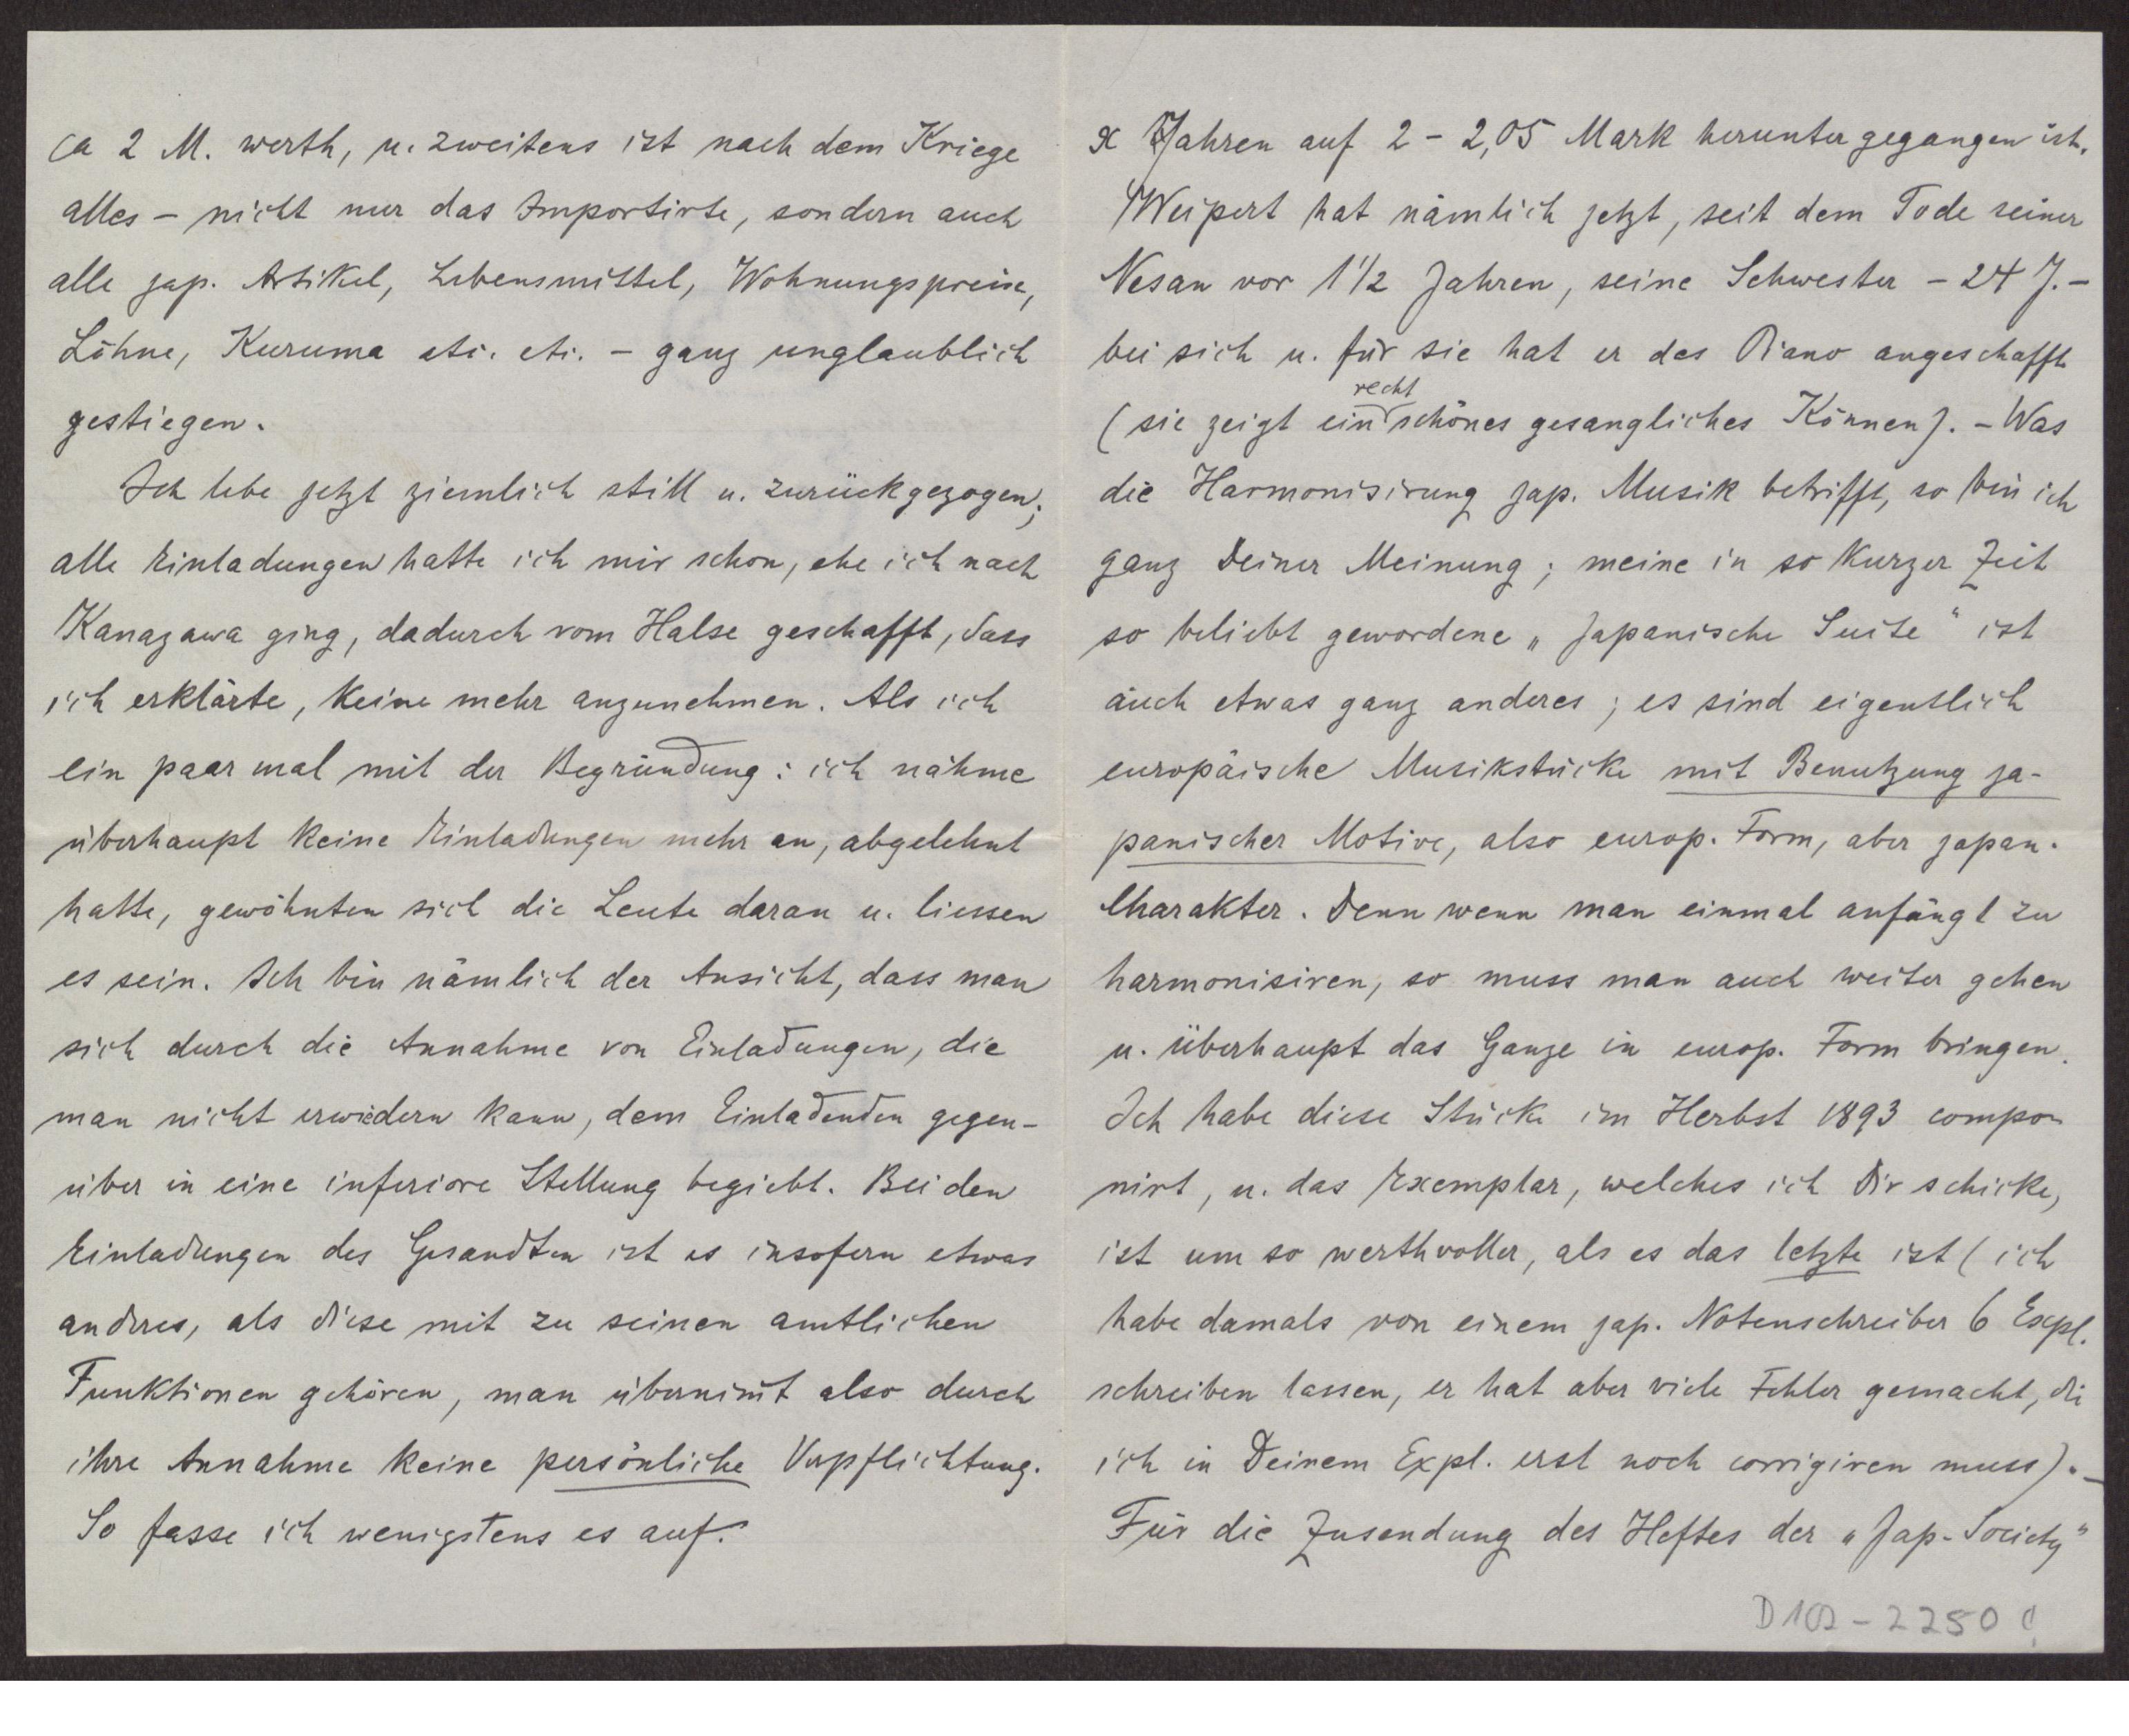 ca 2 M. werth, u. zweitens ist nach dem Kriege
alles – nicht nur das Importirte, sondern auch
alle jap. Artikel, Lebensmittel, Wohnungspreise,
Löhne, Kuruma etc. etc. – ganz unglaublich
gestiegen.
Ich lebe jetzt ziemlich still u. zurückgezogen;
alle Einladungen hatte ich mir schon, ehe ich nach
Kanazawa ging, dadurch vom Halse geschafft, dass
ich erklärte, keine mehr anzunehmen. Als ich
ein paar mal mit der Begründung: ich nähme
überhaupt keine Einladungen mehr an, abgelehnt
hatte, gewöhnten sich die Leute daran u. liessen
es sein. Ich bin nämlich der Ansicht, dass man
sich durch die Annahme von Einladungen, die
man nicht erwiedern kann, dem Einladenden gegen-
über in eine inferiore Stellung begiebt. Bei den
Einladungen des Gesandten ist es insofern etwas
anderes, als diese mit zu seinen amtlichen
Funktionen gehören, man übernimt also durch
ihre Annahme keine persönliche Verpflichtung.
So fasse ich wenigstens es auf.
x Jahren auf 2 – 2,05 Mark heruntergegangen ist.
Weipert hat nämlich jetzt, seit dem Tode seiner
Nesan vor 1 1/2 Jahren, seine Schwester – 24 J. –
bei sich u. für sie hat er das Piano angeschafft
(sie zeigt ein recht schönes gesangliches Können). – Was
die Harmonisirung jap. Musik betrifft, so bin ich
ganz Deiner Meinung; meine in so kurzer Zeit
so beliebt gewordene „Japanische Suite" ist
auch etwas ganz anderes; es sind eigentlich
europäische Musikstücke mit Benutzung ja-
panischer Motive, also europ. Form, aber japan.
Charakter. Denn wenn man einmal anfängt zu
harmonisiren, so muss man auch weiter gehen
u. überhaupt das Ganze in europ. Form bringen.
Ich habe diese Stücke im Herbst 1893 compo-
nirt, u. das Exemplar, welches ich Dir schicke,
ist um so werthvoller, als es das letzte ist (ich
habe damals von einem jap. Notenschreiber 6 Expl.
schreiben lassen, er hat aber viele Fehler gemacht, die
ich in Deinem Expl. erst noch corrigiren muss). –
Für die Zusendung des Heftes der „Jap. Society"
D102-2250